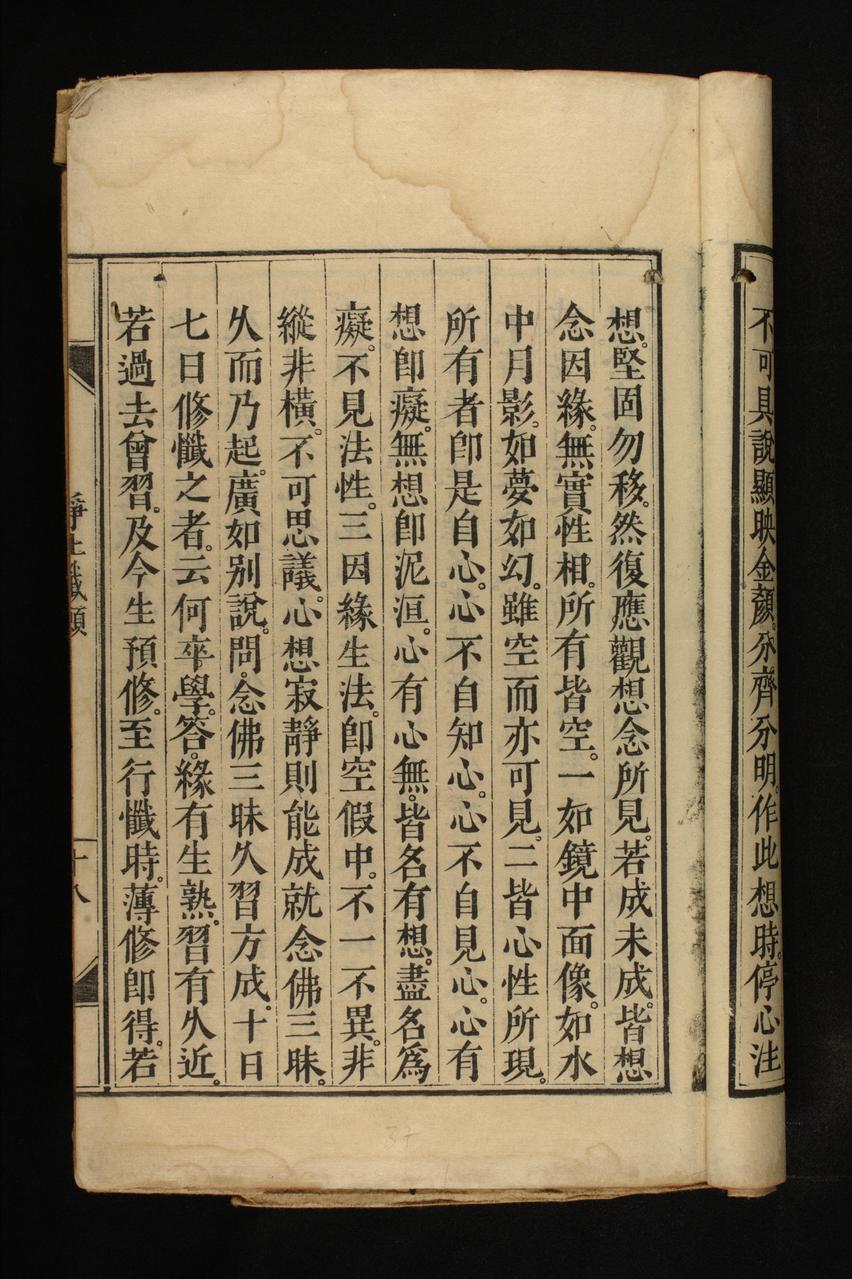 不可具說顯映金顏。分齊分明。作此想時。停心注
想。堅固勿移。然復應觀想念所見。若成未成。皆想
念因緣。無實性相。所有皆空。一如鏡中面像。如水
中月影。如夢如幻。雖空而亦可見。二皆心性所現。
所有者即是自心。心不自知心。心不自見心。心有
想即癡。無想即泥洹。心有心無。皆名有想。盡名為
癡。不見法性。三因緣生法。即空假中。不一不異。非
縱非橫。不可思議。心想寂靜則能成就念佛三昧。
久而乃起。廣如別說。問。念佛三昧久習方成。十日
七日修懺之者。云何卒學。答。緣有生熟。習有久近。
若過去曾習。及今生預修。至行懺時。薄修即得。若
淨土懺願
十八
37